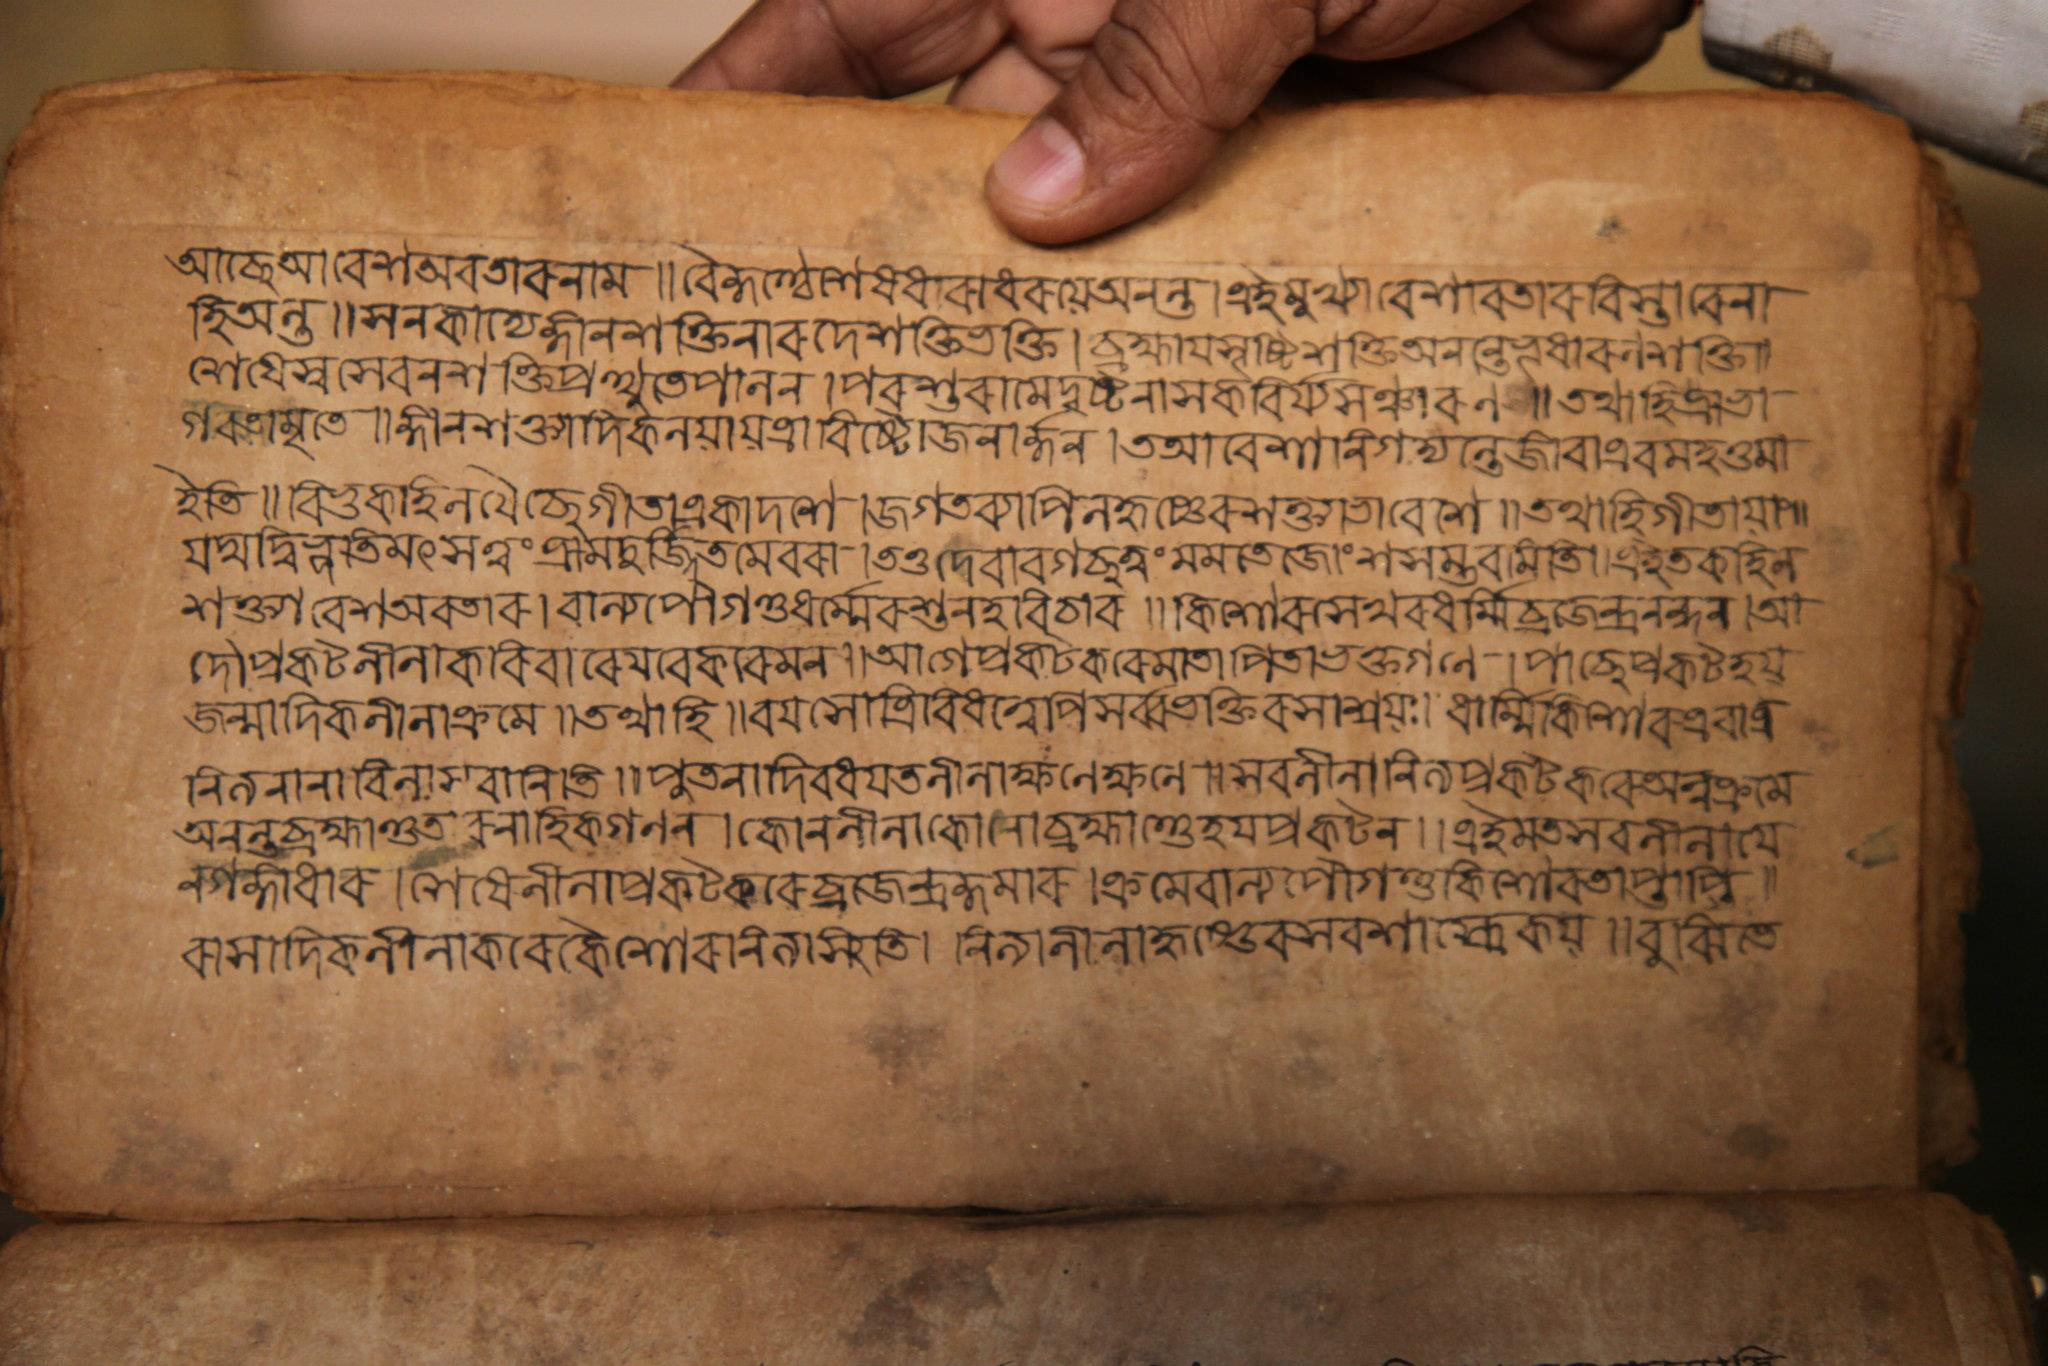 আছেআবেশঅবতারনাম ॥ বৈকুণ্ঠেশেষধরাধরয়েঅনন্ত । এইমুখ্যাবেশাবতারবিস্তারেনা
হিঅন্ত ॥ সনকাদ্যেজ্ঞানশক্তিনারদেশক্তিভক্তি । ব্রহ্মায়সৃষ্টিশক্তিঅনন্তেভূধারণশক্তি ॥
শেষেস্বসেবনশক্তিপৃথুতেপালন । পরশুরামেদুষ্টনাসকবির্য্যসঞ্চারণ ॥ তথাহিশ্রীভা
গবতামৃতে ॥ জ্ঞানশক্ত্যাদিকলয়াযত্রাবিষ্টোজনার্দ্দন । তআবেশানিগদ্যন্তেজীবাএবমহত্তমা
ইতি ॥ বিভুকহিলযৈছেগীতাএকাদশে । জগতব্যাপিলকৃষ্ণেরশক্ত্যাভাবেশে ॥ তথাহিগীতায়াং ॥
যদ্যদ্বিভূতিমৎসত্ত্বংশ্রীমদুর্জ্জিতমেববা । তত্তদেবাবগচ্ছত্বংমমতেজোংশসম্ভবমিতি । এইতকহিল
শক্ত্যাবেশঅবতার । বাল্যপৌগণ্ডধর্ম্মেরশুনহবিচার ॥ কিশোরসেখরধর্ম্মিব্রজেন্দ্রনন্দন । আ
দৌপ্রকটলীলাকরিবারেযবেকরেমন ॥ আগেপ্রকটকরেমাতাপিতাভক্তগণে । পাছেপ্রকটহয়
জন্মাদিকলীলাক্রমে ॥ তথাহি ॥ বয়সোবিবিধত্বেপিসর্ব্বভক্তিরসাশ্রয়ঃ । ধর্ম্মিকিশোরএবাত্র
নিত্যনানাবিলাসবানিতি ॥ পুতনাদিবধযতলীলাক্ষণেক্ষণে ॥ সবলীলানিত্যপ্রকটকরেঅনুক্রমে
অনন্তব্রহ্মাণ্ডতারনাহিকগণন । কোনলীলাকোনোব্রহ্মাণ্ডেহয়প্রকটন ॥ এইমতসবলীলাযে
নগঙ্গাধার । শেষেলীলাপ্রকটকরেব্রজেন্দ্রকুমার । ক্রমেবাল্যপৌগণ্ডকিশোরতাপ্রাপ্তি ॥
রাসাদিকলীলাকরেকৈশোরানিত্যস্থিতি । নিত্যলীলাকৃষ্ণেরসবশাস্ত্রেকয় ॥ বুঝিতে